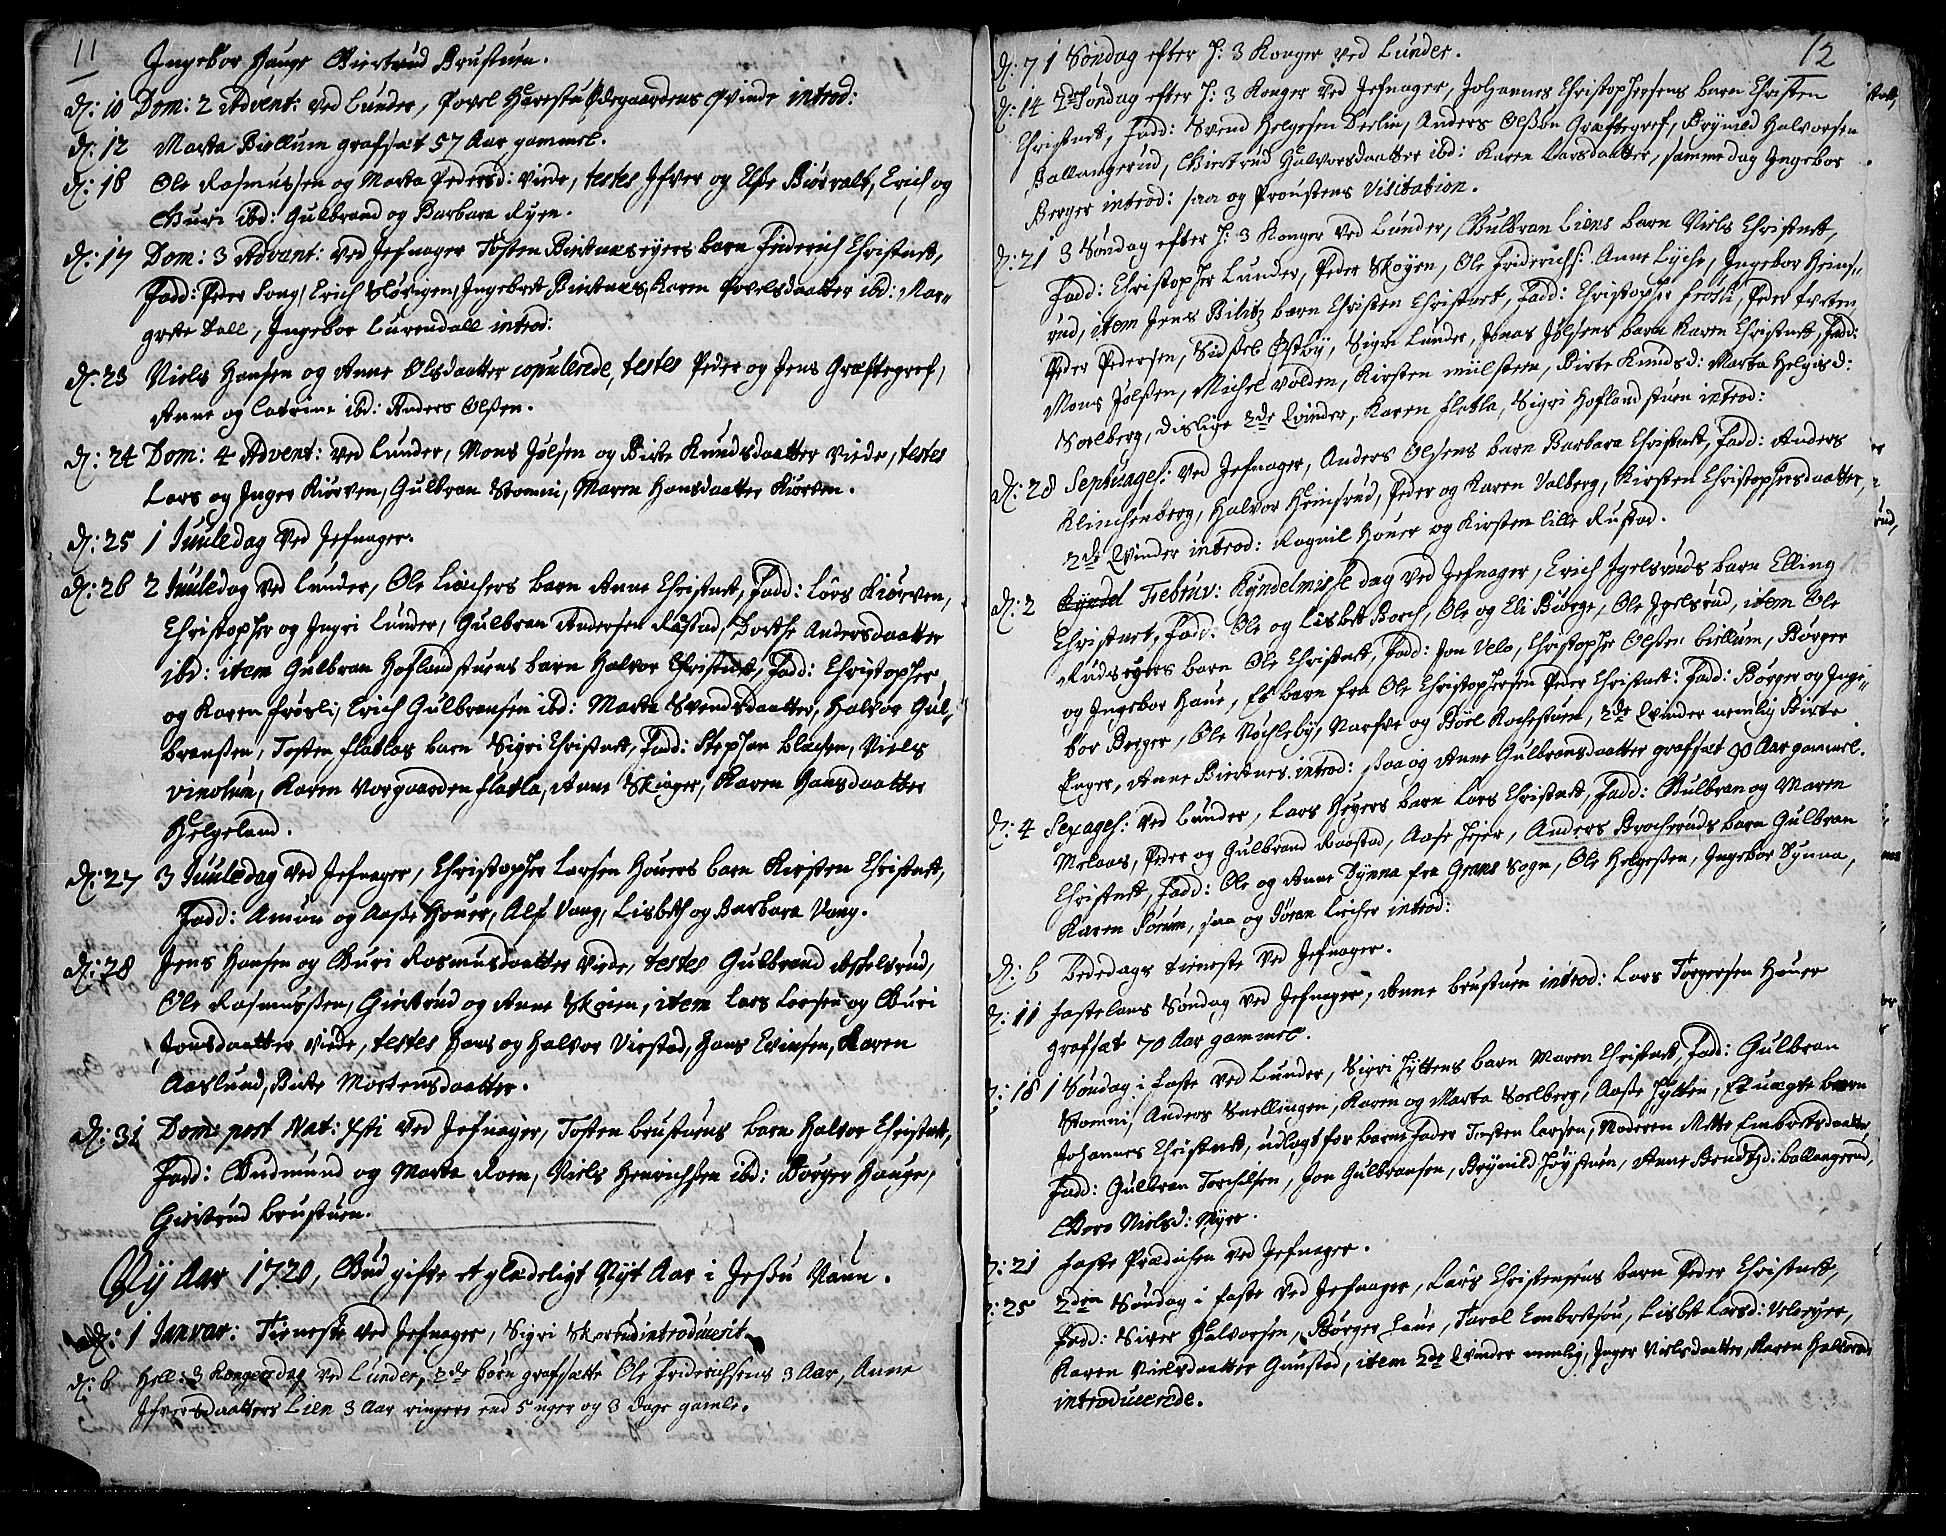 11
Ingebor Hauge Giertrud Brustuen.
d: 10 Dom: 2 Advent: ved Lunder, Povel Harestu Ødegaardens Qvinde introd:
d: 12 Marta Biellum grafsat 57 Aar gammel.
d: 16 Ole Rasmussen og Marta Pedersd: viede, testes Ifver og Else Biørvalt, Erich og
Guri ibd: Gulbrand og Barbara Ryen.
d: 17 Dom: 3 Advent: ved Jefnager Tosten Biertnæs eyers barn Friderich Christnet,
Fadd: Peder Song, Erich Slørigen, Ingebret Biertnæs, Karen Povelsdaatter ibd: Mar-
grete Tall, Ingebor Lurendall introd:
d: 23 Niels Hansen og Anne Olsdaatter copulerede, testes Peder og Jens Græftegref,
Anne og Catrine ibd: Anders Olsen.
d: 24 Dom: 4 Advent: ved Lunder, Mons Jølsen og Birte Knudsdaatter viede, testes
Lars og Inger Kiørven, Gulbran Stomni, Maren Hansdaatter Kiørven.
d: 25 1 Juuledag ved Jefnager.
d: 26 2 Juuledag ved Lunder, Ole Liachers barn Anne Christnet, Fadd: Lars Kiørven,
Christopher og Ingri Lunder, Gulbran Andersen Rustad, Dorthe Andersdaatter
ibd: item Gulbran Hoflandstuens barn Halvor Christnet, Fadd: Christopher
og Karen Frøsli, Erich Gulbransen ibd: Marta Svendsdaatter, Halvor Gul-
bransen, Tosten Flatlas barn Sigri Christnet, Fadd: Stephen Blachen, Niels
Karen Vorgaarden Flatla, Anne Skiager, Karen Hansdaatter
Helgeland.
d: 27 3 Juuledag ved Jefnager, Christopher Larsen Houers barn Kirsten Christnet,
Fadd: Amun og Aase Houer, Alf Vang, Lisbeth og Barbara Vang.
d: 28 Jens Hansen og Guri Rasmusdaatter viede, testes Gulbrand Askelsrud,
Ole Rasmussen, Giertrud og Anne Skøien, item Lars Larsen og Guri
Jonsdaatter viede, testes Hans og Halvor Virstad, Hans Evensen, Karen
Aaslund, Birte Mortensdaatter.
d: 31 Dom: post Nat: Xsti ved Jefnager, Tosten Brustuens barn Halvor Christnet,
Fadd: Gudmund og Marta Roen, Niels Henrichsen ibd: Børger Hauge,
Giertrud Brustuen.
Ny Aar 1720, Gud gifve et glædeligt Nyt Aar i Jesu Naun.
d: 1 Januar: Tieneste ved Jefnager, Sigri Skarrud introducerit.
d: 6 Hell: 3 Kongersdag ved Lunder, 2de børn grafsatte Ole Friderichsens 3 Aar, Anne
Ifversdaatters Lien 3 Aar ringere end 5 uger og 3 dage gamle.
12
d: 7 1 Søndag efter H: 3 Konger ved Lunder.
d: 14 2den Søndag efter H: 3 Konger ved Jefnager, Johannes Christophersens barn Christen
Christnet, Fadd: Svend Helgesen Deelin, Anders Olssøn Græftegref, Brynild Halvorsen
Ballangerud, Giertrud Halvorsdaatter ibd: Karen Larsdaatter, samme dag Ingebor
Berger introd: saa og Proustens Visitation.
d: 21 3 Søndag efter H: 3 Konger ved Lunder, Gulbran Liens barn Niels Christnet,
Fadd: Christopher Lunder, Peder Skøyen, Ole Friderichs: Anne Lyche, Ingebor Heins-
rud, item Jens Bilitz barn Christen Christnet, Fadd: Christopher Frøsli, Peder
Peder Pedersen, Sidsel Østby, Sigri Lunder, Jonas Jølsens barn Karen Christnet, Fadd:
Mons Jølssen, Michel volden, Kirsten Miilsteen, Birte Knudsd: Marta Helgisd:
Soelberg, dislige 2de Qvinder, Karen Flatla, Sigri Hoflandstuen introd:
d: 28 Septuages: ved Jefnager, Anders Olsens barn Barbara Christnet, Fadd: Anders
Klinchenberg, Halvor Heinsrud, Peder og Karen Valberg, Kirsten Christophersdaatter,
2de Qvinder introd: Ragnil Houer og Kirsten lille Rustad.
d: 2 Kyndel Februv: Kyndelmisse dag ved Jefnager, Erich Igelsruds barn Elling
Christnet, Fadd: Ole og Lisbet Borch, Ole og Eli Biørge, Ole Igelsrud, item Ole
Rudseyers barn Ole Christnet, Fadd: Jon Velo, Christopher Olssen Biellum, Børger
og Ingebor Haue, Et barn fra Ole Christophersen Peder Christnet: Fadd: Børger og Inge-
bor Berger, Ole Nøchleby, Narfve og Bøel Kochestuen, 2de Qvinder nemlig Birte
Enger, Anne Biertnes introd: saa og Anne Gulbransdaatter grafsat 90 Aar gammel.
d: 4 Sexages: ved Lunder, Lars Heyers barn Lars Christnet, Fadd: Gulbran og Maren
Melaas, Peder og Gulbrand Raastad, Aase Heier, Anders Brocheruds barn Gulbran
Christnet, Fadd: Ole og Anne Dynna fra Grans Sogn, Ole Helgessen, Ingebor Dynna,
Karen Sørum, saa og Søran Liecher introd:
d: 6 Bededags tieneste ved Jefnager.
d: 11 Fastelans Søndag ved Jefnager, Anne Brustuen introd: Lars Torgersen Houer
grafsat 70 Aar gammel.
d: 18 1 Søndag i faste ved Lunder, Sigri Hyttens barn Maren Christnet, Fadd: Gulbran
Stomni, Anders Snellingen, Karen og Marta Soelberg, Aase Hytten, Et uægte barn
Johannes Christnet, udlagt for barnefader Torsten Larsen, Moderen Mette Embretsdaatter,
Fadd: Gulbran Torchelsen, Jon Gulbransen, Brynild Høystuen, Anne Bendtzd: Ballangerud,
Goro Nielsd: Myre.
d: 21 Faste Prædichen ved Jefnager.
d: 25 2den Søndag i faste ved Jefnager, Lars Christensens barn Peder Christnet,
Fadd: Siver Halvorsen, Børger Haue, Tarol Embretsøn, Lisbet Larsd: Veleyer,
Karen Nielsdaatter Gunstad, item 2de Qvinder nemlig, Inger Nielsdaatter, Karen Halvorsd
introducerede.